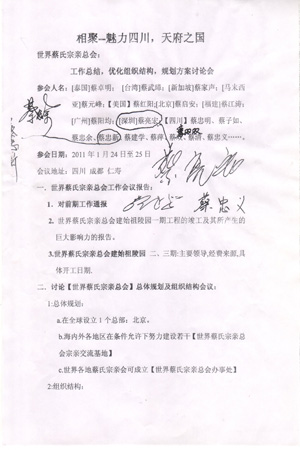 相聚—魅力四川，天府之国
世界蔡氏宗亲总会：
工作总结，优化组织结构，规划方案讨论会
参会人名：[泰国]蔡卓明； [台湾]蔡武璋；[新加坡]蔡家声；[马来西
亚]蔡元峰；【美国】蔡红阳；[北京]蔡启安；[福建]蔡江涛；
[广州]蔡阳均；[深圳]蔡亮宝；【四川】蔡志明、蔡子如、
蔡忠余、蔡忠新、蔡建学、蔡萍、蔡 、蔡清、蔡忠文……、
参会日期：2011年1月24日至25日
会议地址：四川 成都 仁寿
一. 世界蔡氏宗亲总会工作会议报告：
1. 对前期工作通报
蔡忠义
2. 世界蔡氏宗亲总会建始祖陵园一期工程的竣工及其所产生的
巨大影响力的报告。
3.世界蔡氏宗亲总会建始祖陵园 二、三期：主要领导,经费来源,具
体开工日期.
二. 讨论【世界蔡氏宗亲会】总体规划及组织结构会议：
1:总体规划：
a.在全球设立1个总部：北京。
b.海内外各地区在条件允许下努力建设若干【世界蔡氏宗亲总
会宗亲交流基地】
c.世界各地蔡氏宗亲会可成立【世界蔡氏宗亲总会办事处】
2:组织结构：